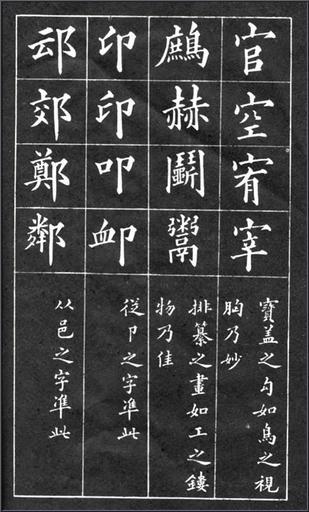 官空宥宰
寶盖之勾如鳥之視
胸乃妙
鷓赫鬭鬻
排纂之畫如工之鏤
物乃佳
印印叩卹
従卩之字準此
䢵郊鄭鄰
从邑之字準此